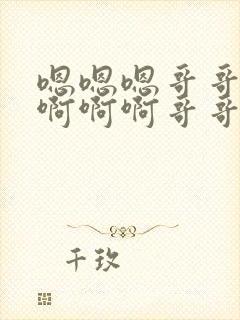 嗯嗯嗯哥哥
啊啊啊哥哥
千玖